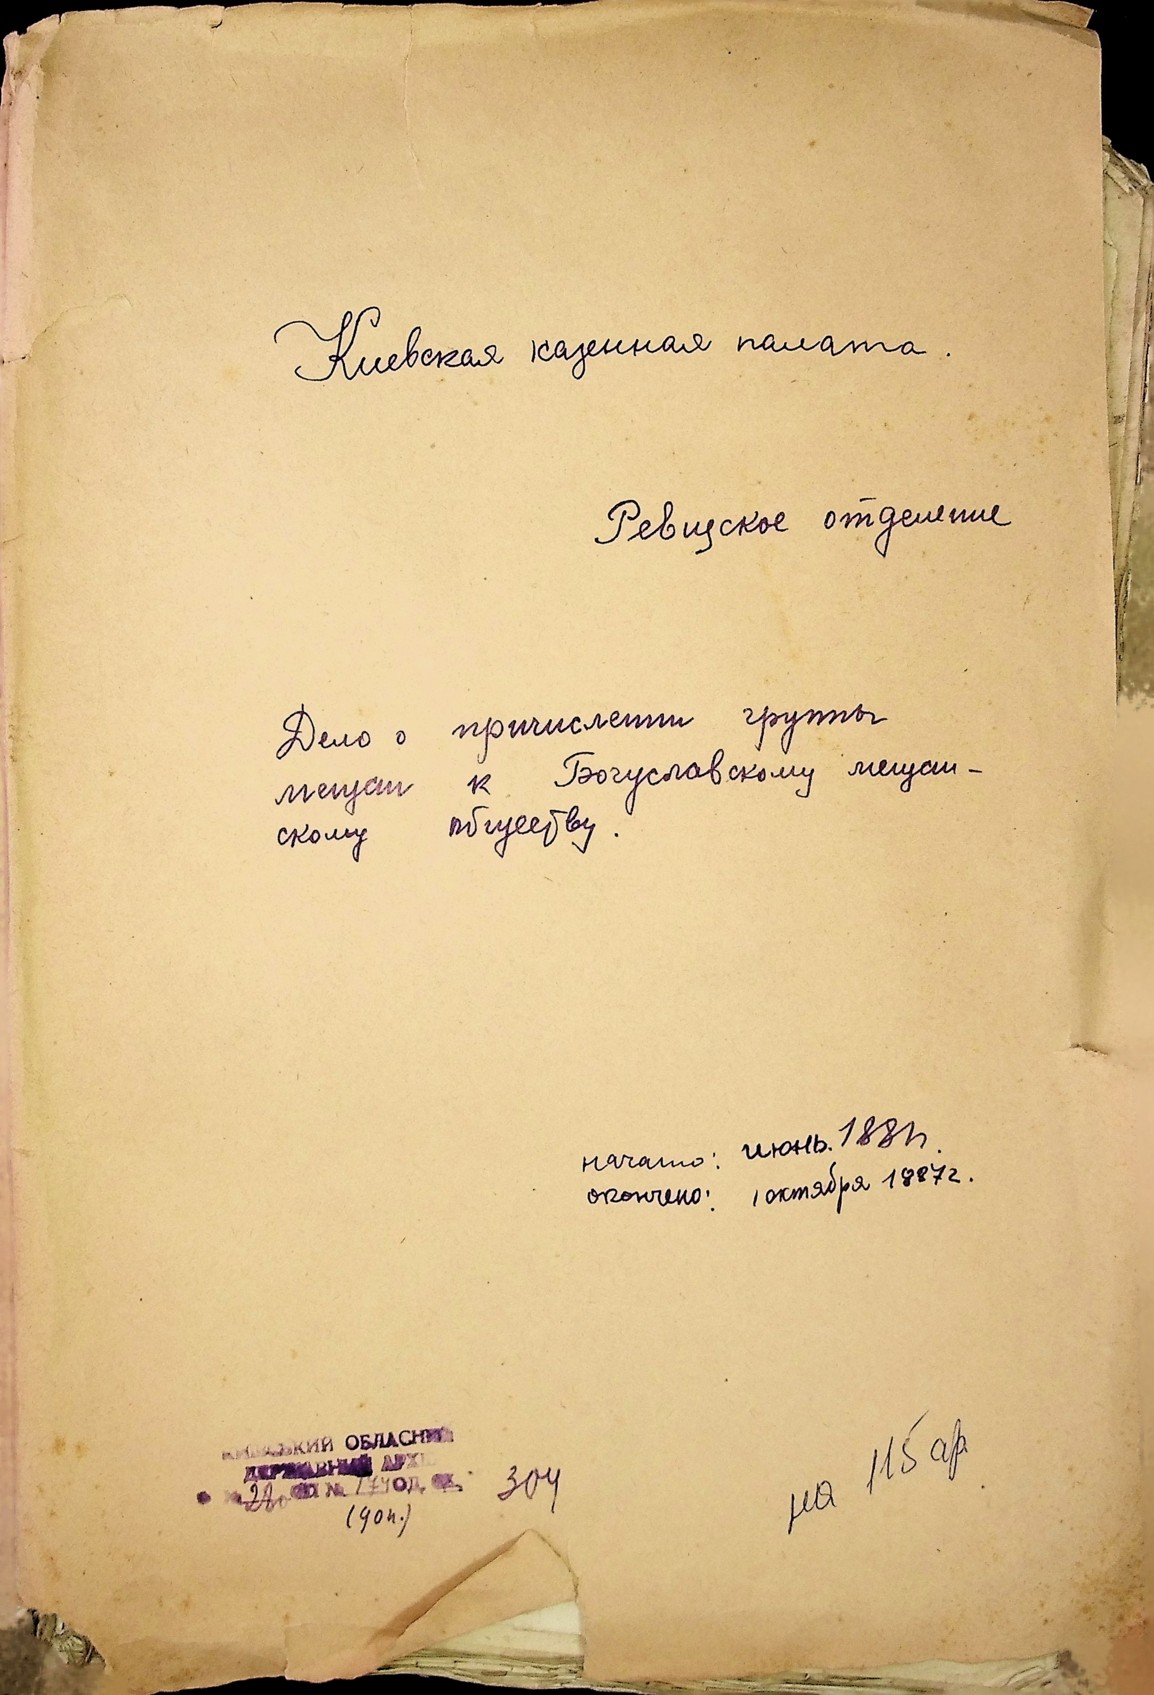 Киевская казенная палата.
Ревизское отделение
Дело о причислении группы
мещан к Богуславскому мещан-
скому обществу.
начато: июнь.
окончено: 1 октября 1887 г.
КИЇВСЬКИЙ ОБЛАСНИЙ
ДЕРЖАВНИЙ АРХІВ
ОД. ЗБ. 304
(доп.)
на 115 ар